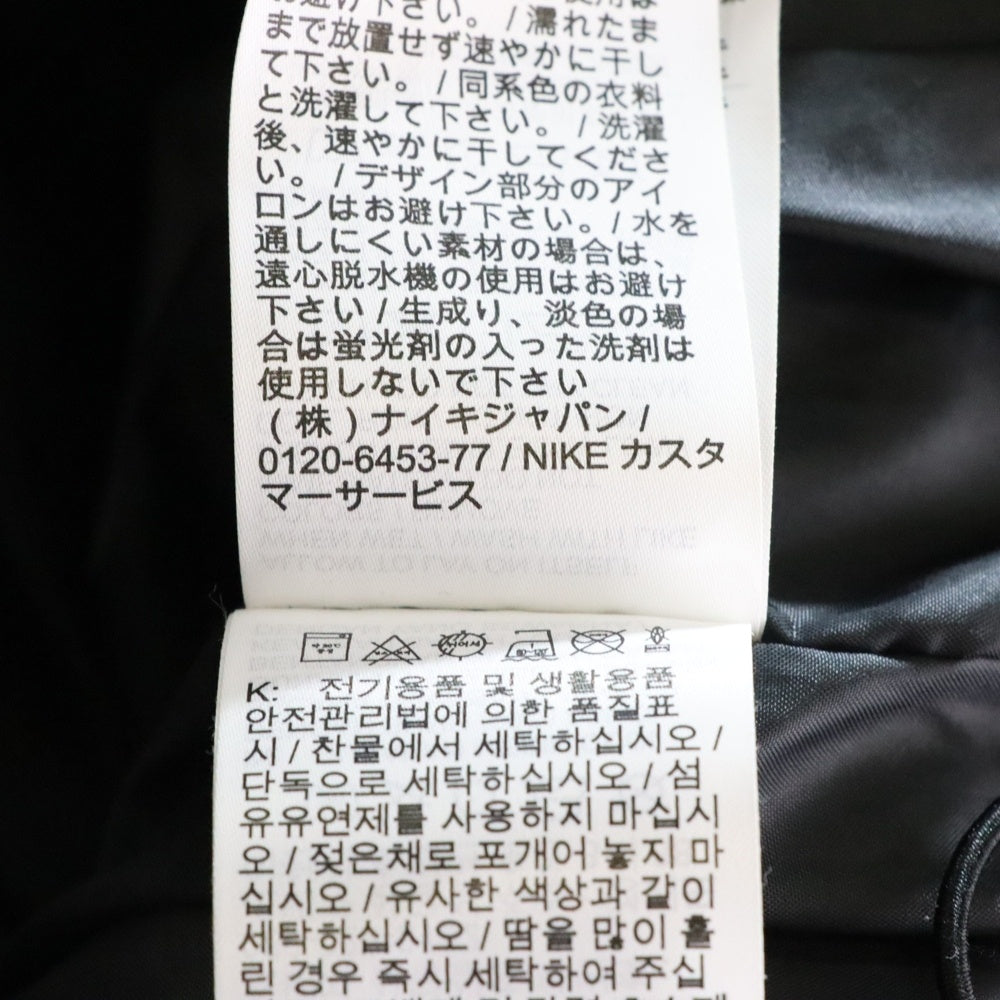 お避け下さい。/濡れたま
まで放置せず速やかに干し
て下さい。/同系色の衣料
と洗濯して下さい。/洗濯
後、速やかに干してくださ
い。/デザイン部分のアイ
ロンはお避け下さい。/水を
通しにくい素材の場合は、
遠心脱水機の使用はお避け
下さい/生成り、淡色の場
合は蛍光剤の入った洗剤は
使用しないで下さい
(株)ナイキジャパン/
0120-6453-77 / NIKE カスタ
マーサービス
K: 전기용품 및 생활용품
안전관리법에 의한 품질표
시 / 찬물에서 세탁하십시오 /
단독으로 세탁하십시오 / 섬
유유연제를 사용하지 마십시
오 / 젖은채로 포개어 놓지 마
십시오 / 유사한 색상과 같이
세탁하십시오 / 땀을 많이 흘
린 경우 즉시 세탁하여 주십